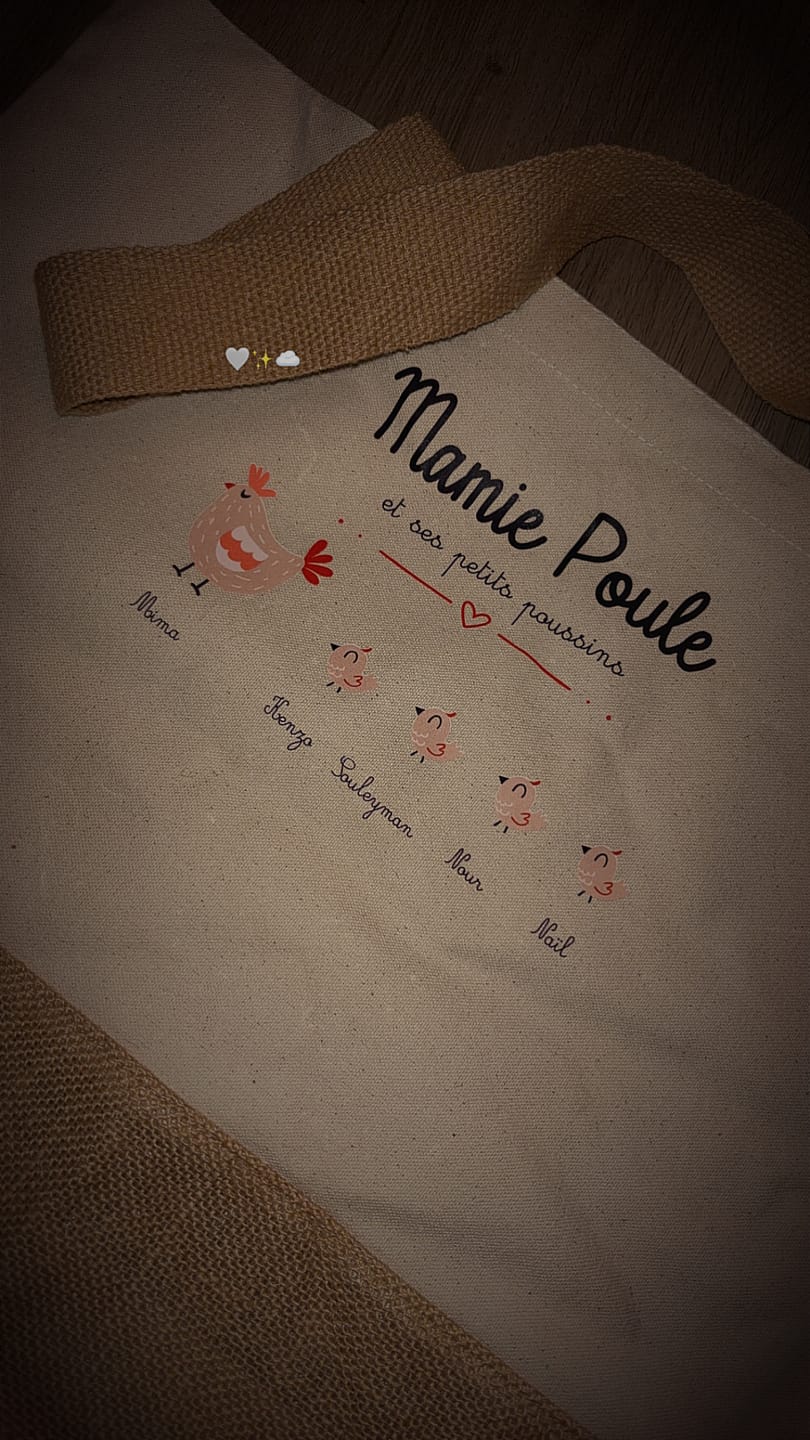 🤍✨☁️
Mamie Poule
et ses petits poussins
Mima
Kenzo
Souleyman
Nour
Naïl